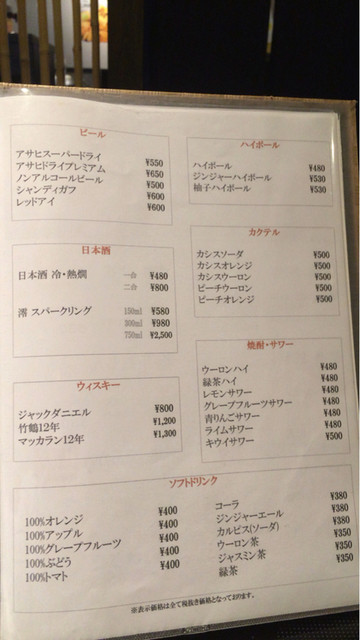 ビール
アサヒスーパードライ ¥550
アサヒドライプレミアム ¥650
ノンアルコールビール ¥500
シャンディガフ ¥600
レッドアイ ¥600
ハイボール
ハイボール ¥480
ジンジャーハイボール ¥530
柚子ハイボール ¥530
日本酒
日本酒 冷・熱燗 一合 ¥480
二合 ¥800
澪 スパークリング 150ml ¥580
300ml ¥980
750ml ¥2,500
カクテル
カシスソーダ ¥500
カシスオレンジ ¥500
カシスウーロン ¥500
ピーチウーロン ¥500
ピーチオレンジ ¥500
ウィスキー
ジャックダニエル ¥800
竹鶴12年 ¥1,200
マッカラン12年 ¥1,300
焼酎・サワー
ウーロンハイ ¥480
緑茶ハイ ¥480
レモンサワー ¥480
グレープフルーツサワー ¥480
青りんごサワー ¥480
ライムサワー ¥480
キウイサワー ¥500
ソフトドリンク
100%オレンジ ¥400
100%アップル ¥400
100%グレープフルーツ ¥400
100%ぶどう ¥400
100%トマト ¥400
コーラ ¥380
ジンジャーエール ¥380
カルピス(ソーダ) ¥380
ウーロン茶 ¥350
ジャスミン茶 ¥350
緑茶 ¥350
※表示価格は全て税抜き価格となっております。